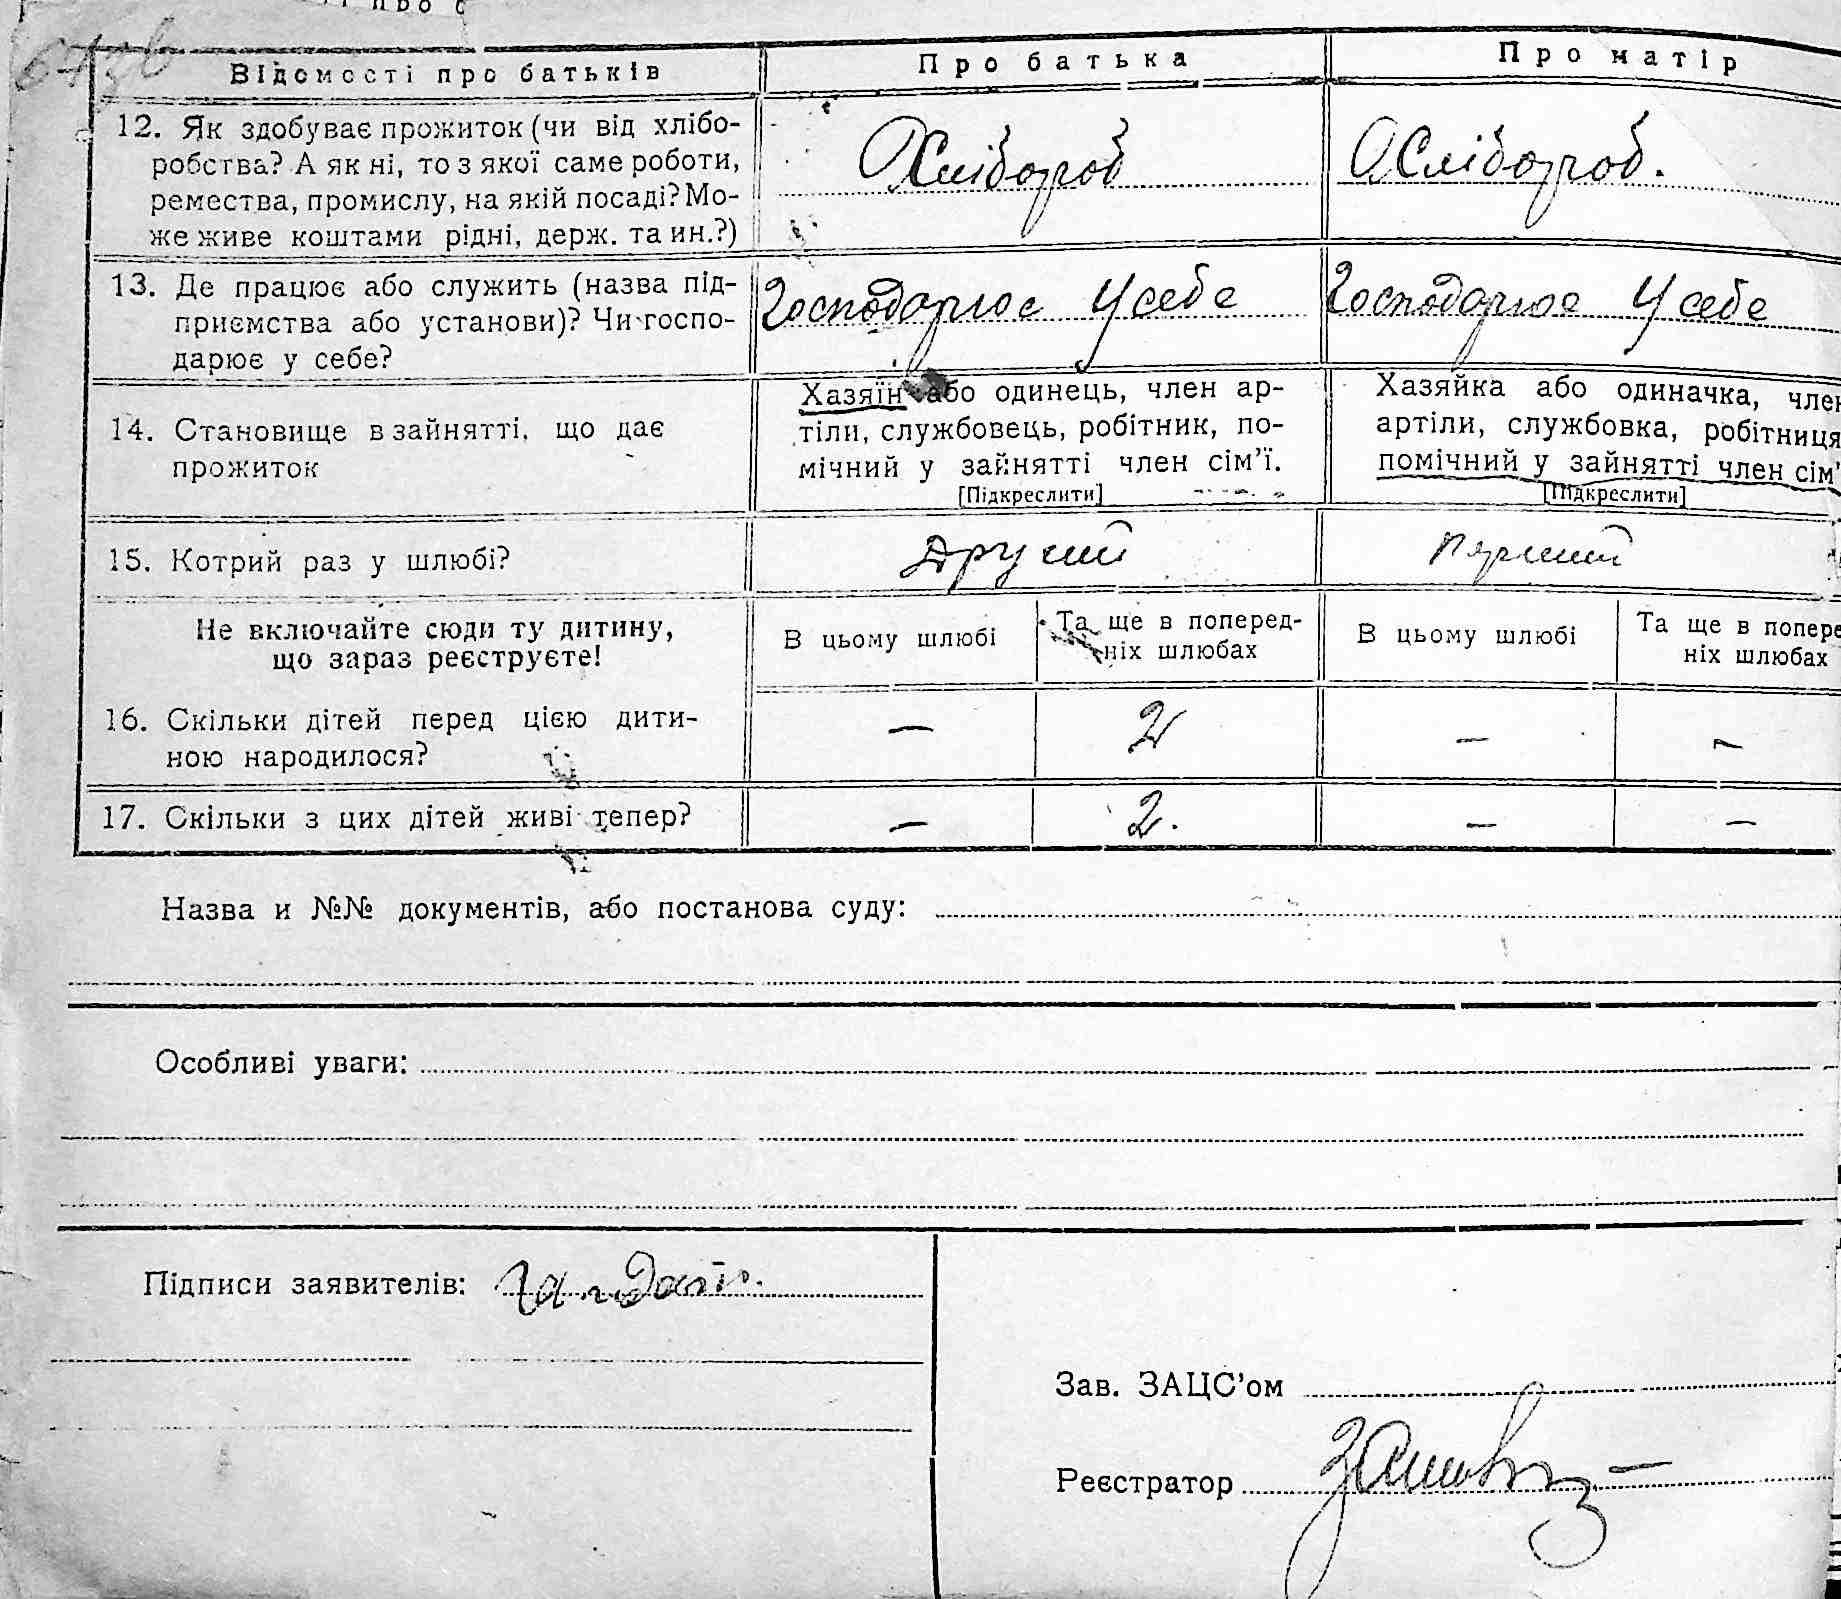 Відомості про батьків
Про батька
Про матір
12. Як здобуває прожиток (чи від хлібо-
робства? А як ні, то з якої саме роботи,
ремества, промислу, на якій посаді? Мо-
же живе коштами рідні, держ. та ин.?)
Хлібороб
Хлібороб.
13. Де працює або служить (назва під-
приємства або установи)? Чи госпо-
дарює у себе?
Господарює у себе
Господарює у себе
14. Становище в зайнятті, що дає
прожиток
Хазяїн або одинець, член ар-
тіли, службовець, робітник, по-
мічний у зайнятті член сім'ї.
[Підкреслити]
Хазяйка або одиначка, член
артіли, службовка, робітниця
помічний у зайнятті член сім'
[Підкреслити]
15. Котрий раз у шлюбі?
Другий
Перший
Не включайте сюди ту дитину,
що зараз реєструєте!
В цьому шлюбі
Та ще в поперед-
ніх шлюбах
В цьому шлюбі
Та ще в попере
ніх шлюбах
16. Скільки дітей перед цією дити-
ною народилося?
— 2 — —
17. Скільки з цих дітей живі тепер?
— 2. — —
Назва и №№ документів, або постанова суду:
Особливі уваги:
Підписи заявителів:
Зав. ЗАЦС'ом
Реєстратор